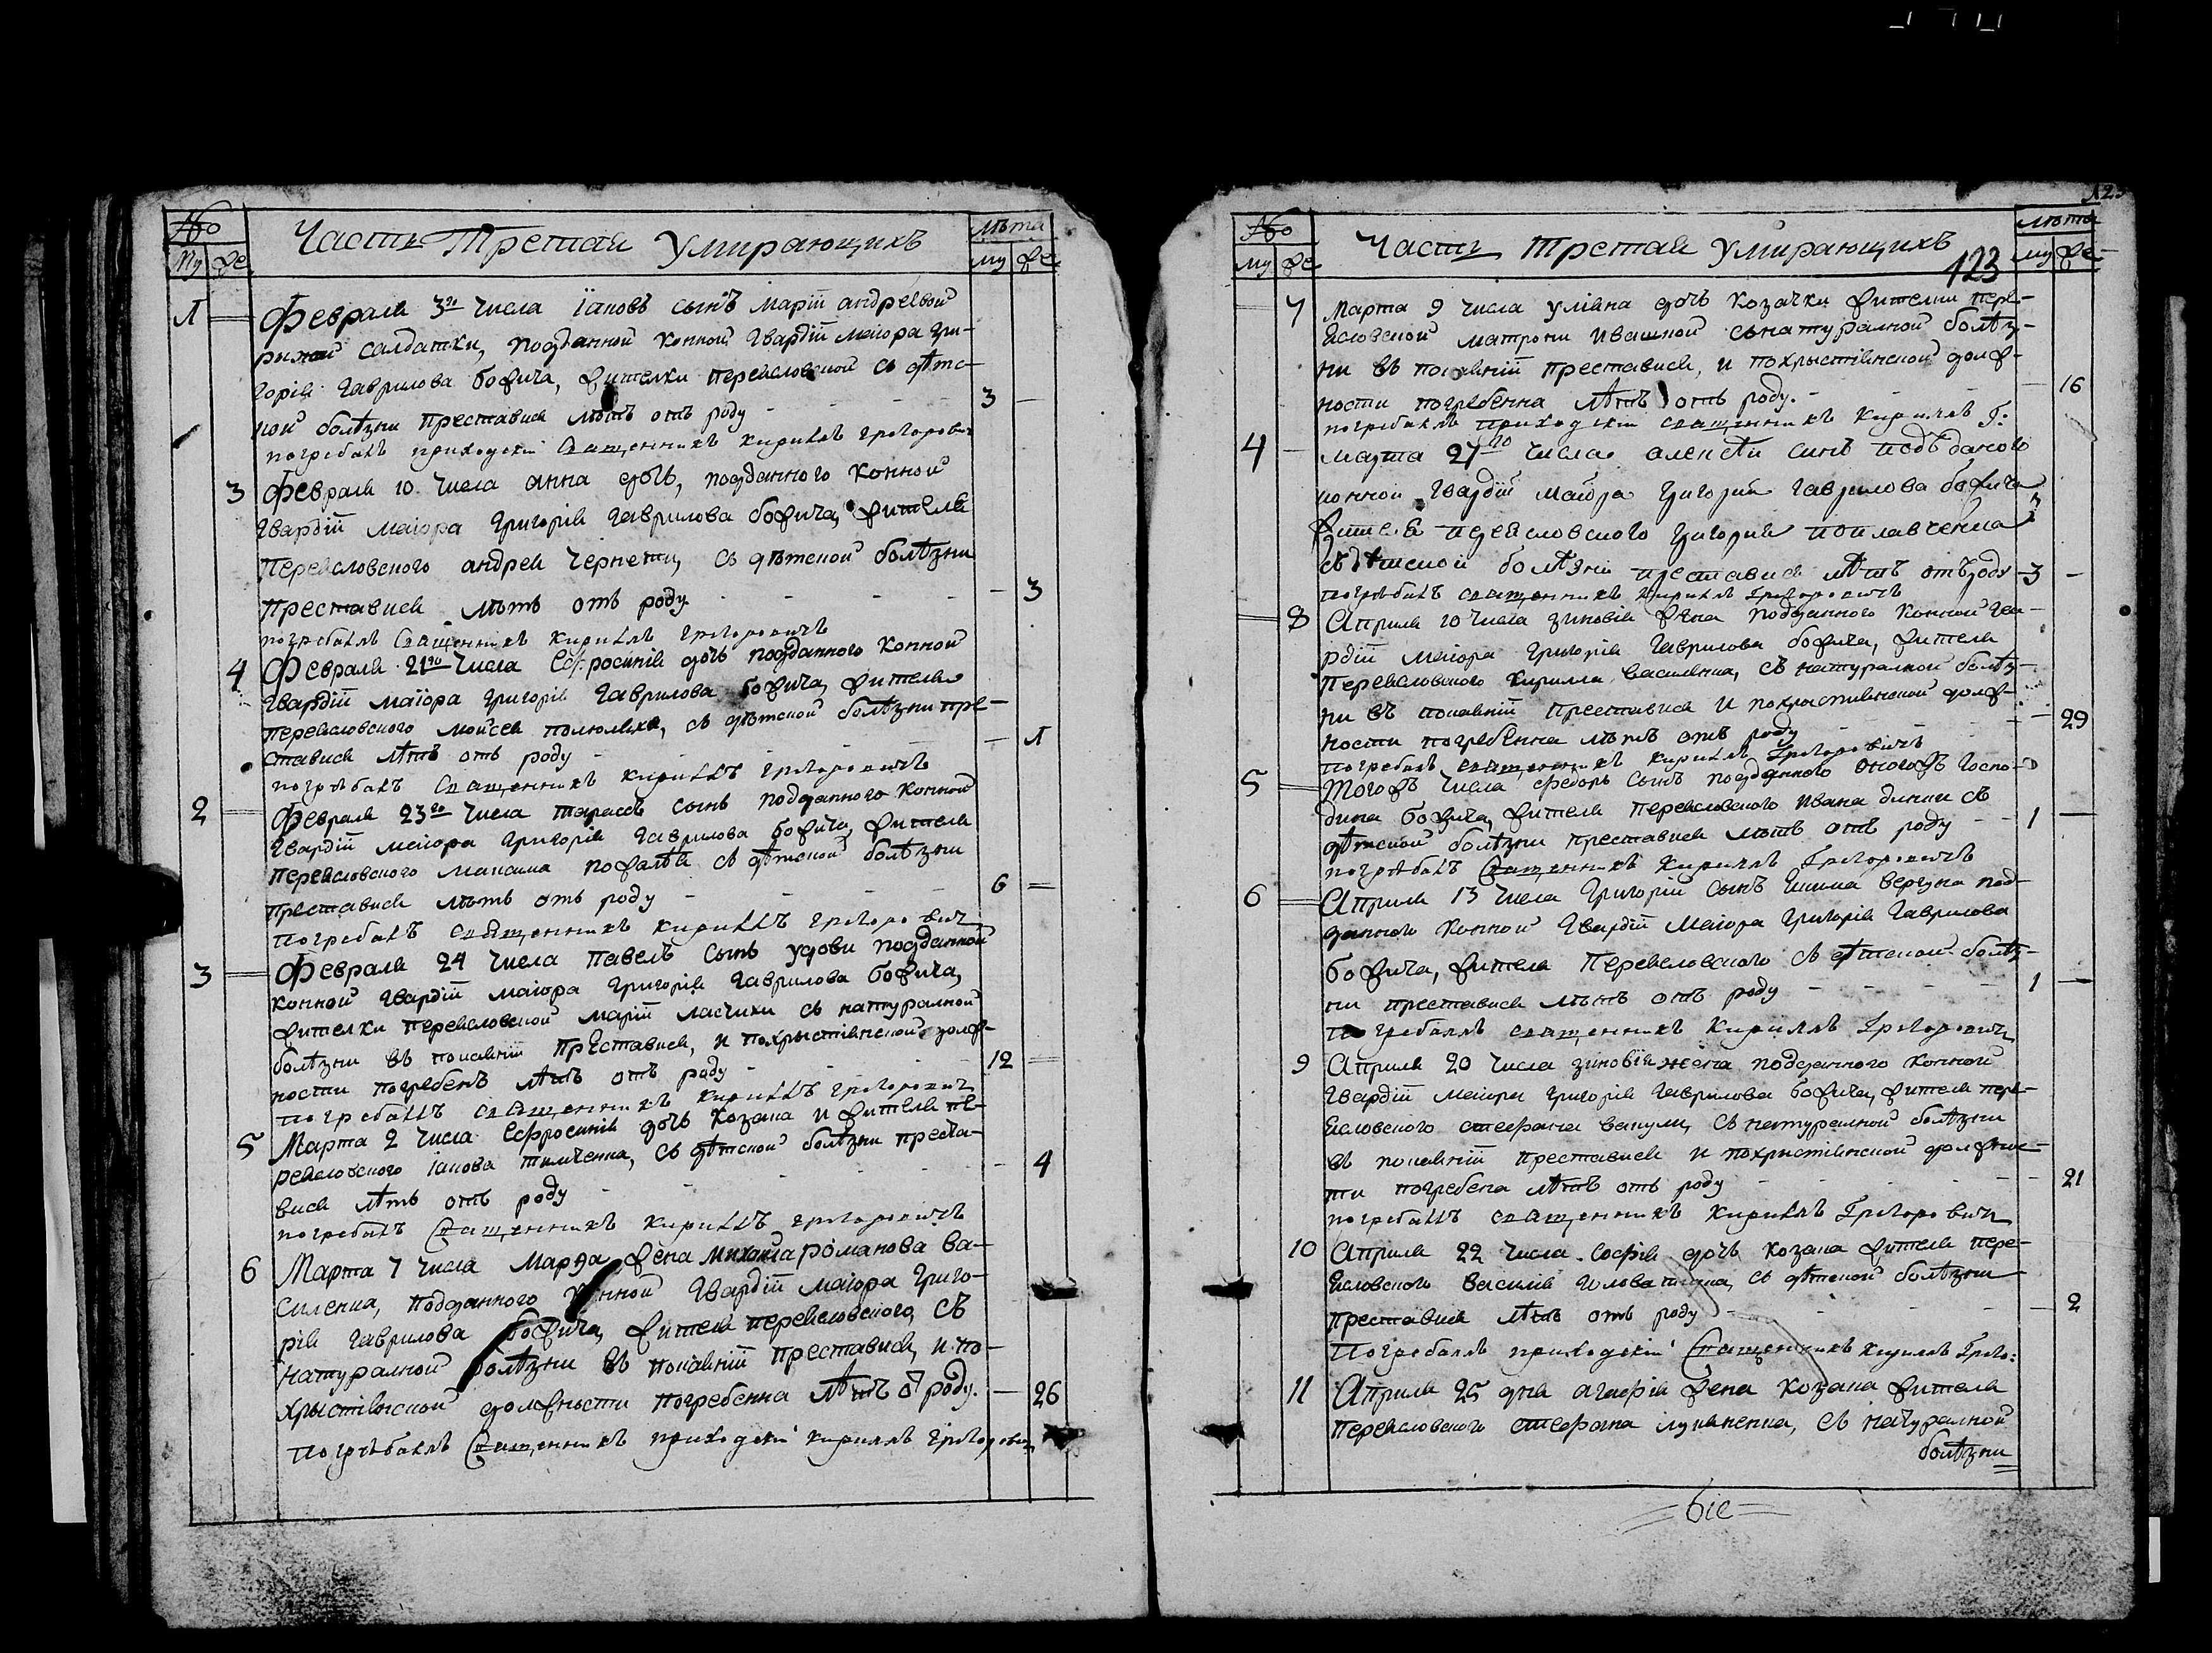 №
Часть Третая Умирающихъ
лѣта
му фе
му фе
1
Февраля 3го числа Іаковъ сынъ Маріи андреевой
салдатки, подданной конной Гвардіи маіора Гри-
горія Гаврилова божича, жителки переясловской съ дѣтс-
кой болѣзни преставися лѣтъ отъ роду 3
погребалъ приходскій Священникъ Кириллъ Григорович
3
Февраля 10 числа анна дочь, подданного конной
Гвардіи маіора Григорія Гаврилова божича, жителя
Переясловского андрея Чернети, съ дѣтской болѣзни
преставися лѣтъ отъ роду 3
погребалъ Священникъ Кириллъ Григоровичъ
4
Февраля 21го числа Ефросинія дочь подданного конной
Гвардіи маіора Григорія Гаврилова божича, жителя
переясловского мойсея , съ дѣтской болѣзни пре-
ставися лѣтъ отъ роду 1
погребалъ Священникъ Кириллъ Григоровичъ
2
Февраля 23го числа тарасъ сынъ подданного конной
Гвардіи маіора Григорія Гаврилова божича, жителя
Переясловского максима съ дѣтской болѣзни
преставися лѣтъ отъ роду 6
погребалъ священникъ Кириллъ Григорович
3
Февраля 24 числа Павелъ сынъ удови подданной
конной Гвардіи маіора Григорія Гаврилова божича,
жителки переясловской маріи ласчихи съ натуралной
болѣзни въ покаяніи преставися, и похрыстіянской долж-
ности погребенъ лѣтъ отъ роду 12
погребалъ священникъ Кириллъ Григорович
5
Марта 2 числа Ефросинія дочь козака и жителя пе-
реясловского іакова тимченка, съ дѣтской болѣзни преста-
вися лѣтъ отъ роду 4
погребалъ Священникъ Кириллъ Григоровичъ
6
Марта 7 числа Марѳа жена Михаила романова ва-
силенка, подданного конной Гвардіи маіора Григо-
рія Гаврилова божича, жителя переясловского, съ
натуралной болѣзни въ покаяніи преставися, и по-
хрыстіянской должности погребенна лѣтъ отъ роду. 26
погребалъ Священникъ приходскій Кириллъ Григорович
123
№
Часть Третая Умирающихъ
123
лѣта
му фе
му фе
7
Марта 9 числа уліяна дочь козачки жителки пере-
ясловской матрони ивашной сънатуралной болѣз-
ни въ покаяніи преставися, и похрыстіянской долж-
ности погребенна лѣтъ отъ роду. 16
погребалъ приходскій священникъ Кириллъ Г:
4
марта 27го числа алексѣи синъ подъданого
конной Гвардіи маіора Григорія Гаврилова божича
жителя переясловского Григорія поплавченка
съ дѣтской болѣзни преставися лѣтъ отъ роду 3
погребалъ священникъ Кириллъ Григоровичъ
8
Априля 10 числа зиновія жена подданного конной Гва-
рдіи маіора Григорія Гаврилова божича, жителя
Переясловского Кирилла василенка, съ натуралной болѣз-
ни въ покаяніи преставися и похрыстіянской долж-
ности погребенна лѣтъ отъ роду 29
погребалъ священникъ Кириллъ Григоровичъ
5
Тогожъ числа феодоръ сынъ подданного оногожъ госпо-
дина божича, жителя Переясловского ивана динки съ
дѣтской болѣзни преставися лѣтъ отъ роду 1
погребалъ Священникъ Кириллъ Григоровичъ
6
Априля 13 числа Григорій сынъ вергуна под-
данного конной Гвардіи Маіора Григорія Гаврилова
божича, жителя Переясловского съ дѣтской болѣз-
ни преставися лѣтъ отъ роду 1
погребаллъ священникъ Кириллъ Григорович
9
Априля 20 числа зиновія жена подданного конной
Гвардіи маіора Григорія Гаврилова божича, жителя пере-
ясловского стефана вакули, съ натуралной болѣзни
въ покаяніи преставися и похрыстіянской должнос-
ти погребена лѣтъ отъ роду 21
погребалъ священникъ Кириллъ Григорович
10
Априля 22 числа софія дочь козака жителя пере-
ясловского василія , съ дѣтской болѣзни
преставися лѣтъ отъ роду 2
Погребалъ приходскій Священникъ Кириллъ Григо:
11
Априля 25 дня агафія жена козака жителя
переясловского стефана лукяненка, съ натуралной
болѣзни